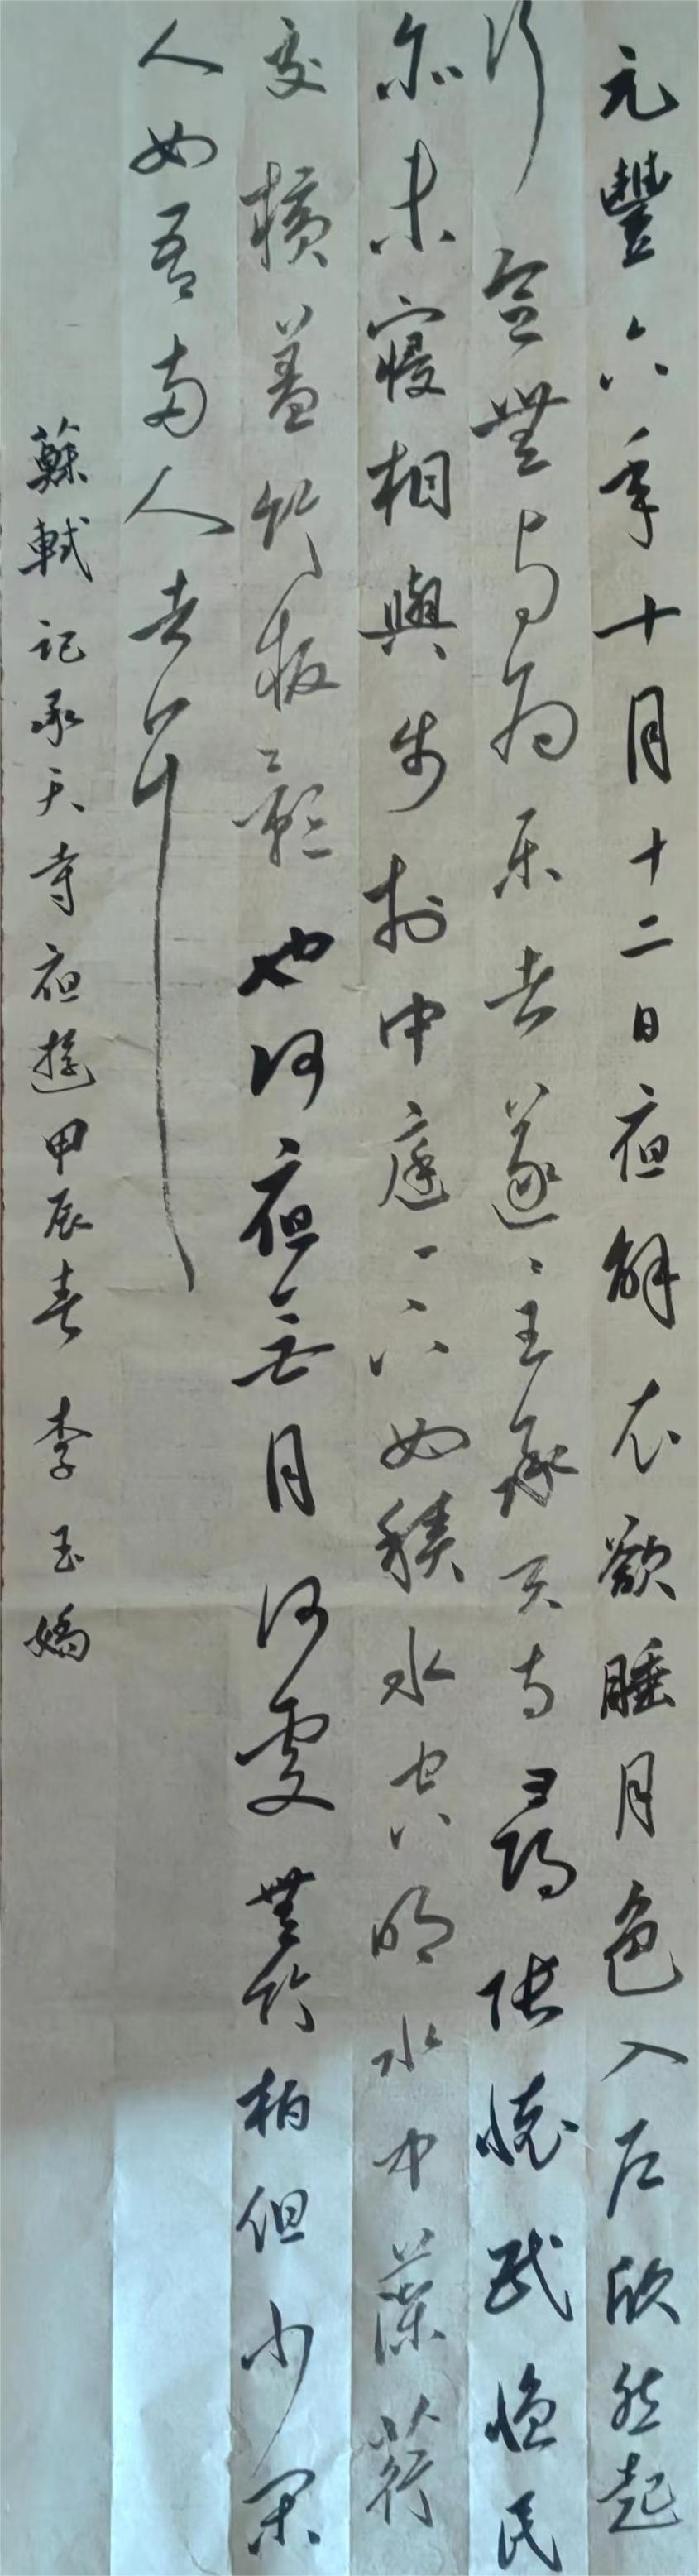 元豐六年十月十二日夜解衣欲睡月色入户欣然起
行念無与为乐者遂至承天寺尋張懷民懷民
亦未寢相與步於中庭庭下如積水空明水中藻荇
交橫蓋竹柏影也何夜無月何處無竹柏但少閑
人如吾兩人者耳
蘇軾記承天寺夜遊甲辰春李玉嬌